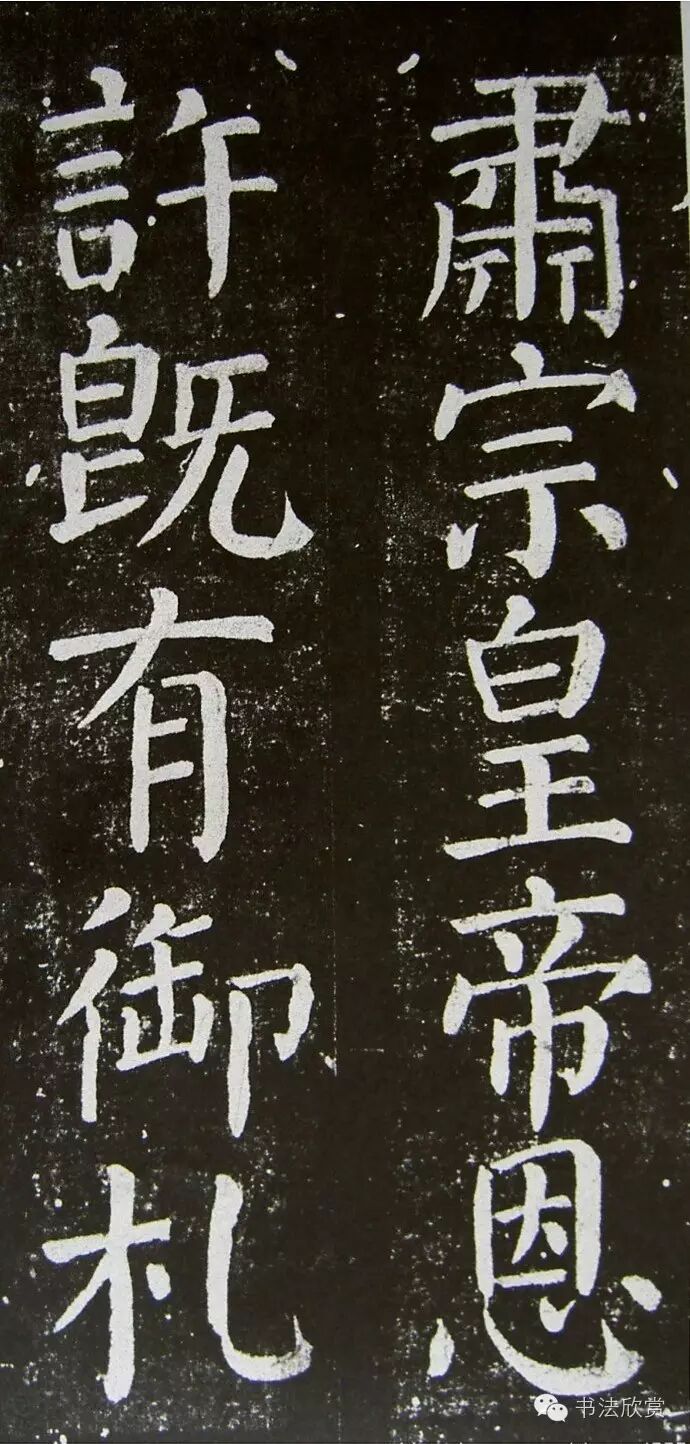 肅宗皇帝恩
許既有御札
书法欣赏